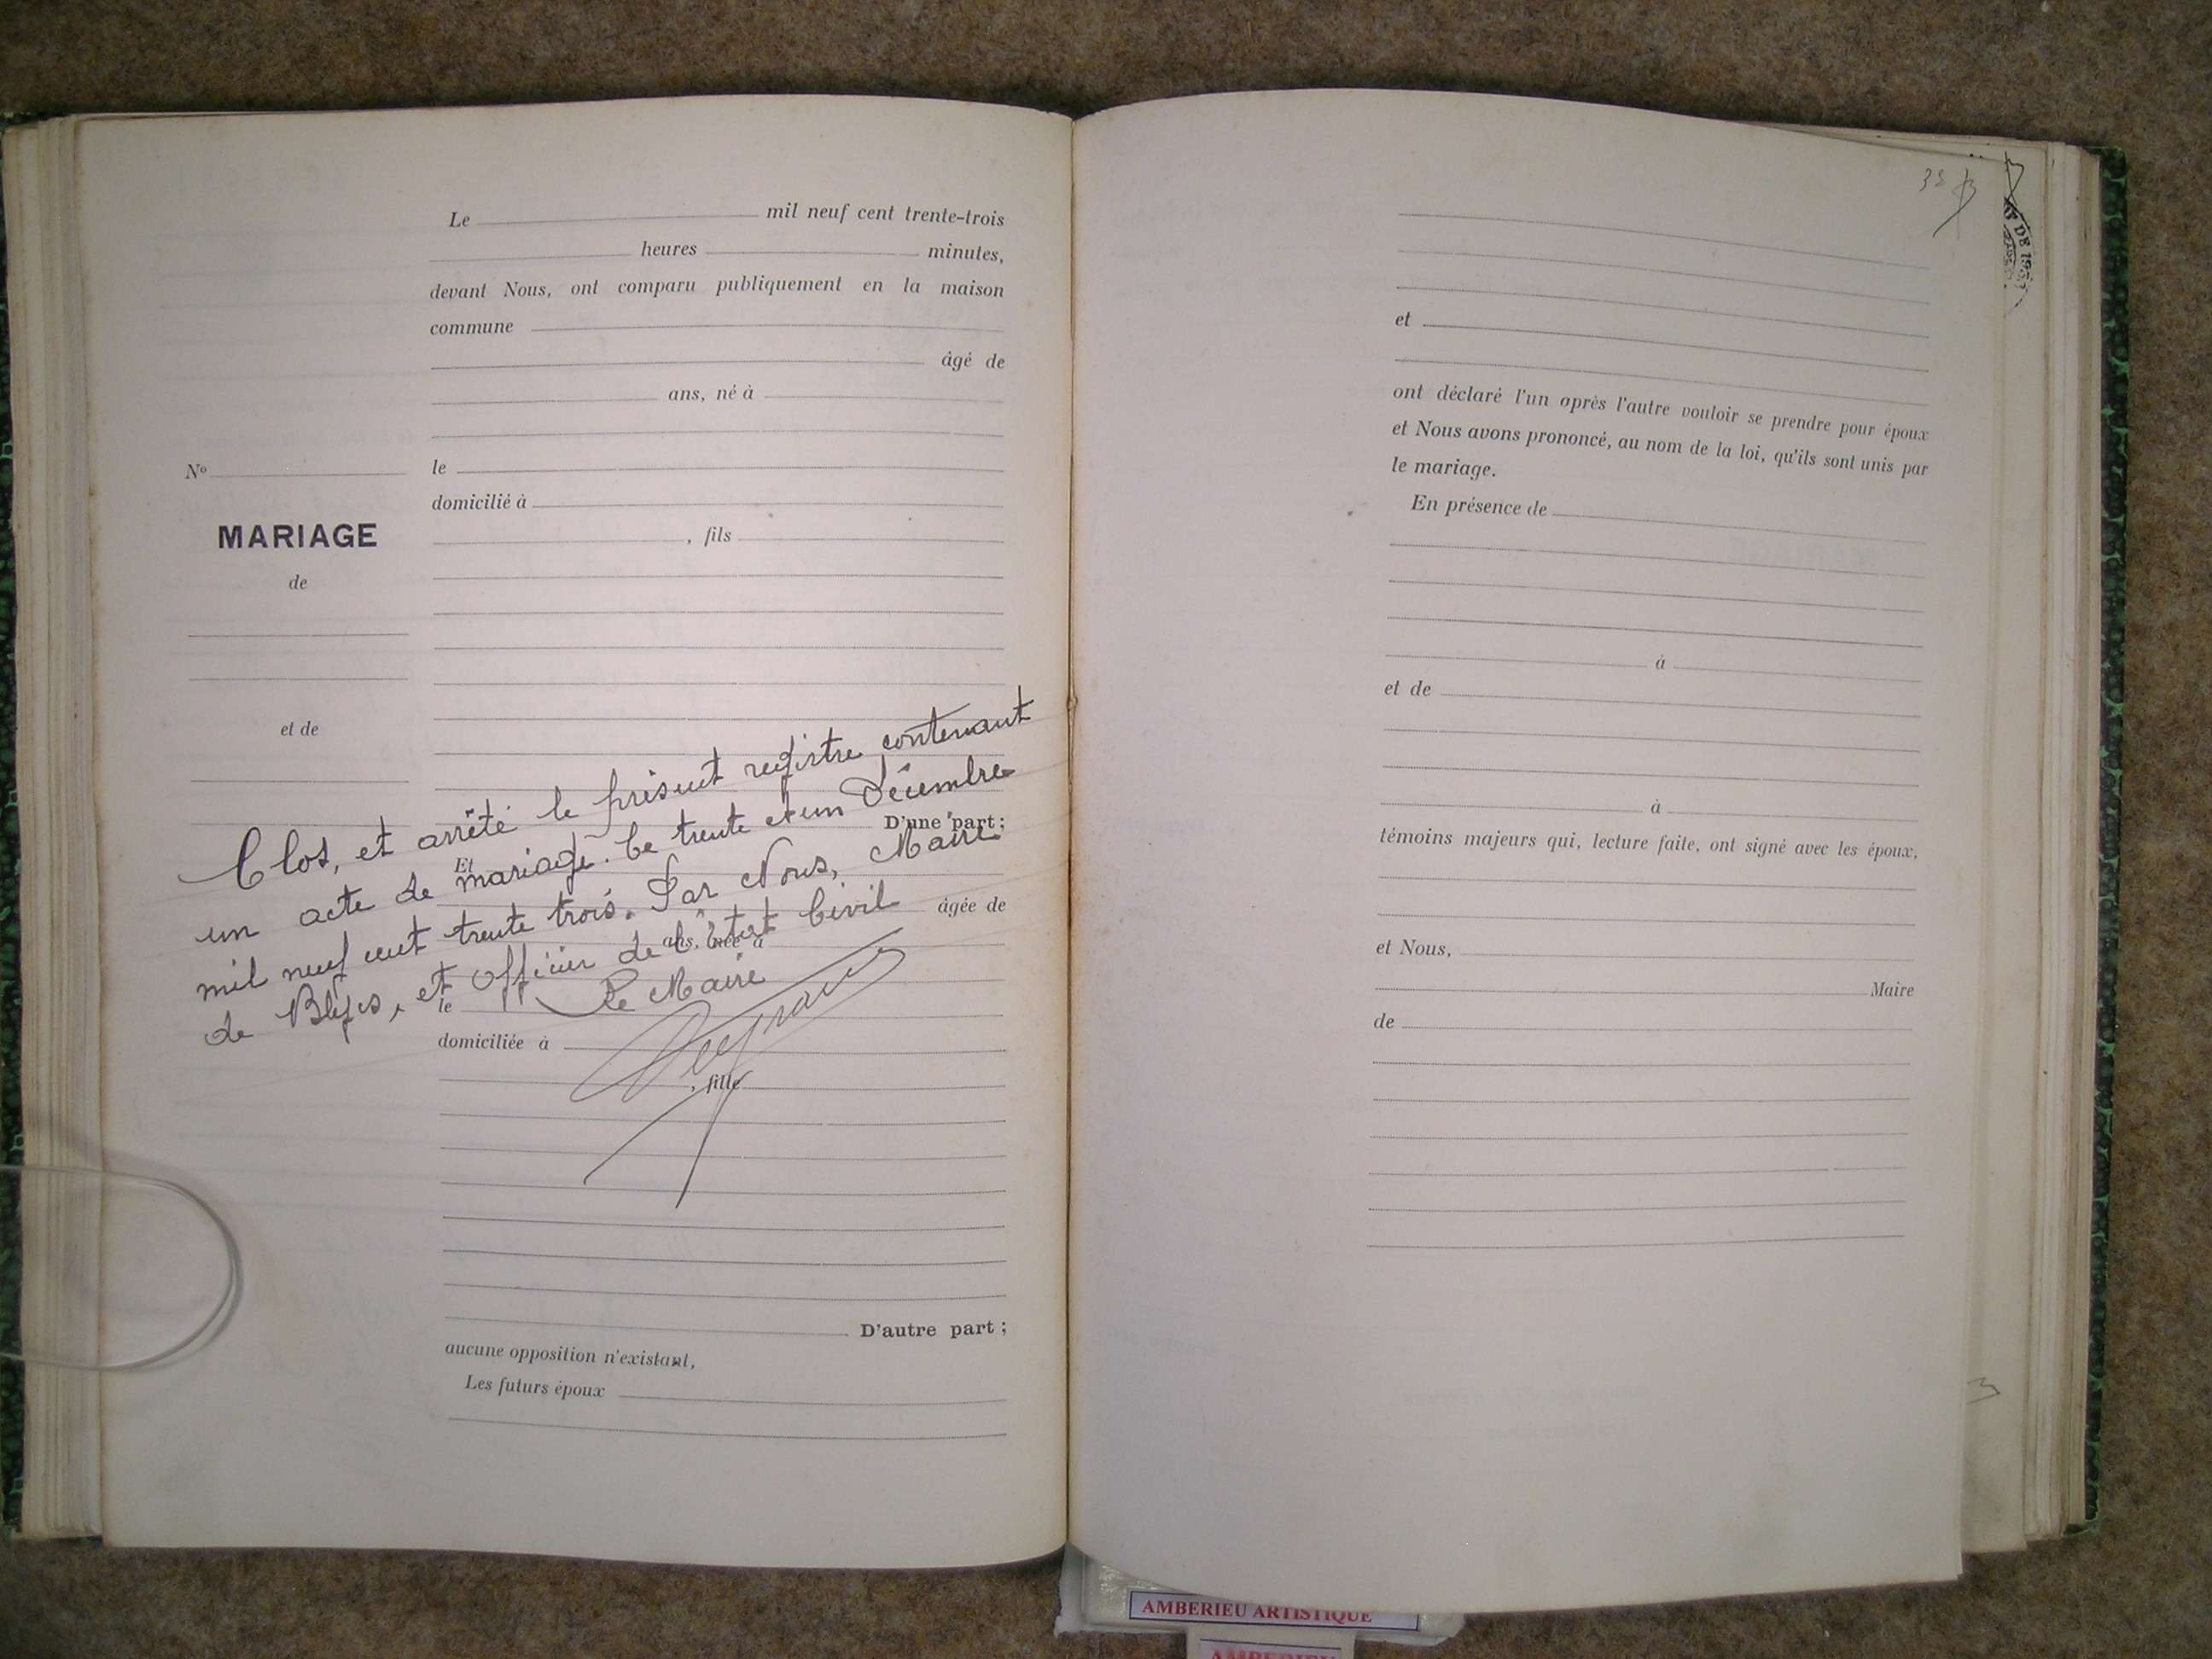 Le mil neuf cent trente-trois
heures minutes,
devant Nous, ont comparu publiquement en la maison
commune
âgé de
ans, né à
No
le
domicilié à
MARIAGE
, fils
de
et de
Clos, et arrêté le présent registre contenant
un acte de mariage. Ce trente et un Décembre
mil neuf cent trente trois. Par Nous, Maire
de et Officier de l'état Civil
Le Maire
D'une part ;
Et
âgée de
ans, née à
le
domiciliée à
, fille
D'autre part ;
aucune opposition n'existant,
Les futurs époux
et
ont déclaré l'un après l'autre vouloir se prendre pour époux
et Nous avons prononcé, au nom de la loi, qu'ils sont unis par
le mariage.
En présence de
à
et de
à
témoins majeurs qui, lecture faite, ont signé avec les époux,
et Nous,
Maire
de
AMBERIEU ARTISTIQUE
AMBERIEU